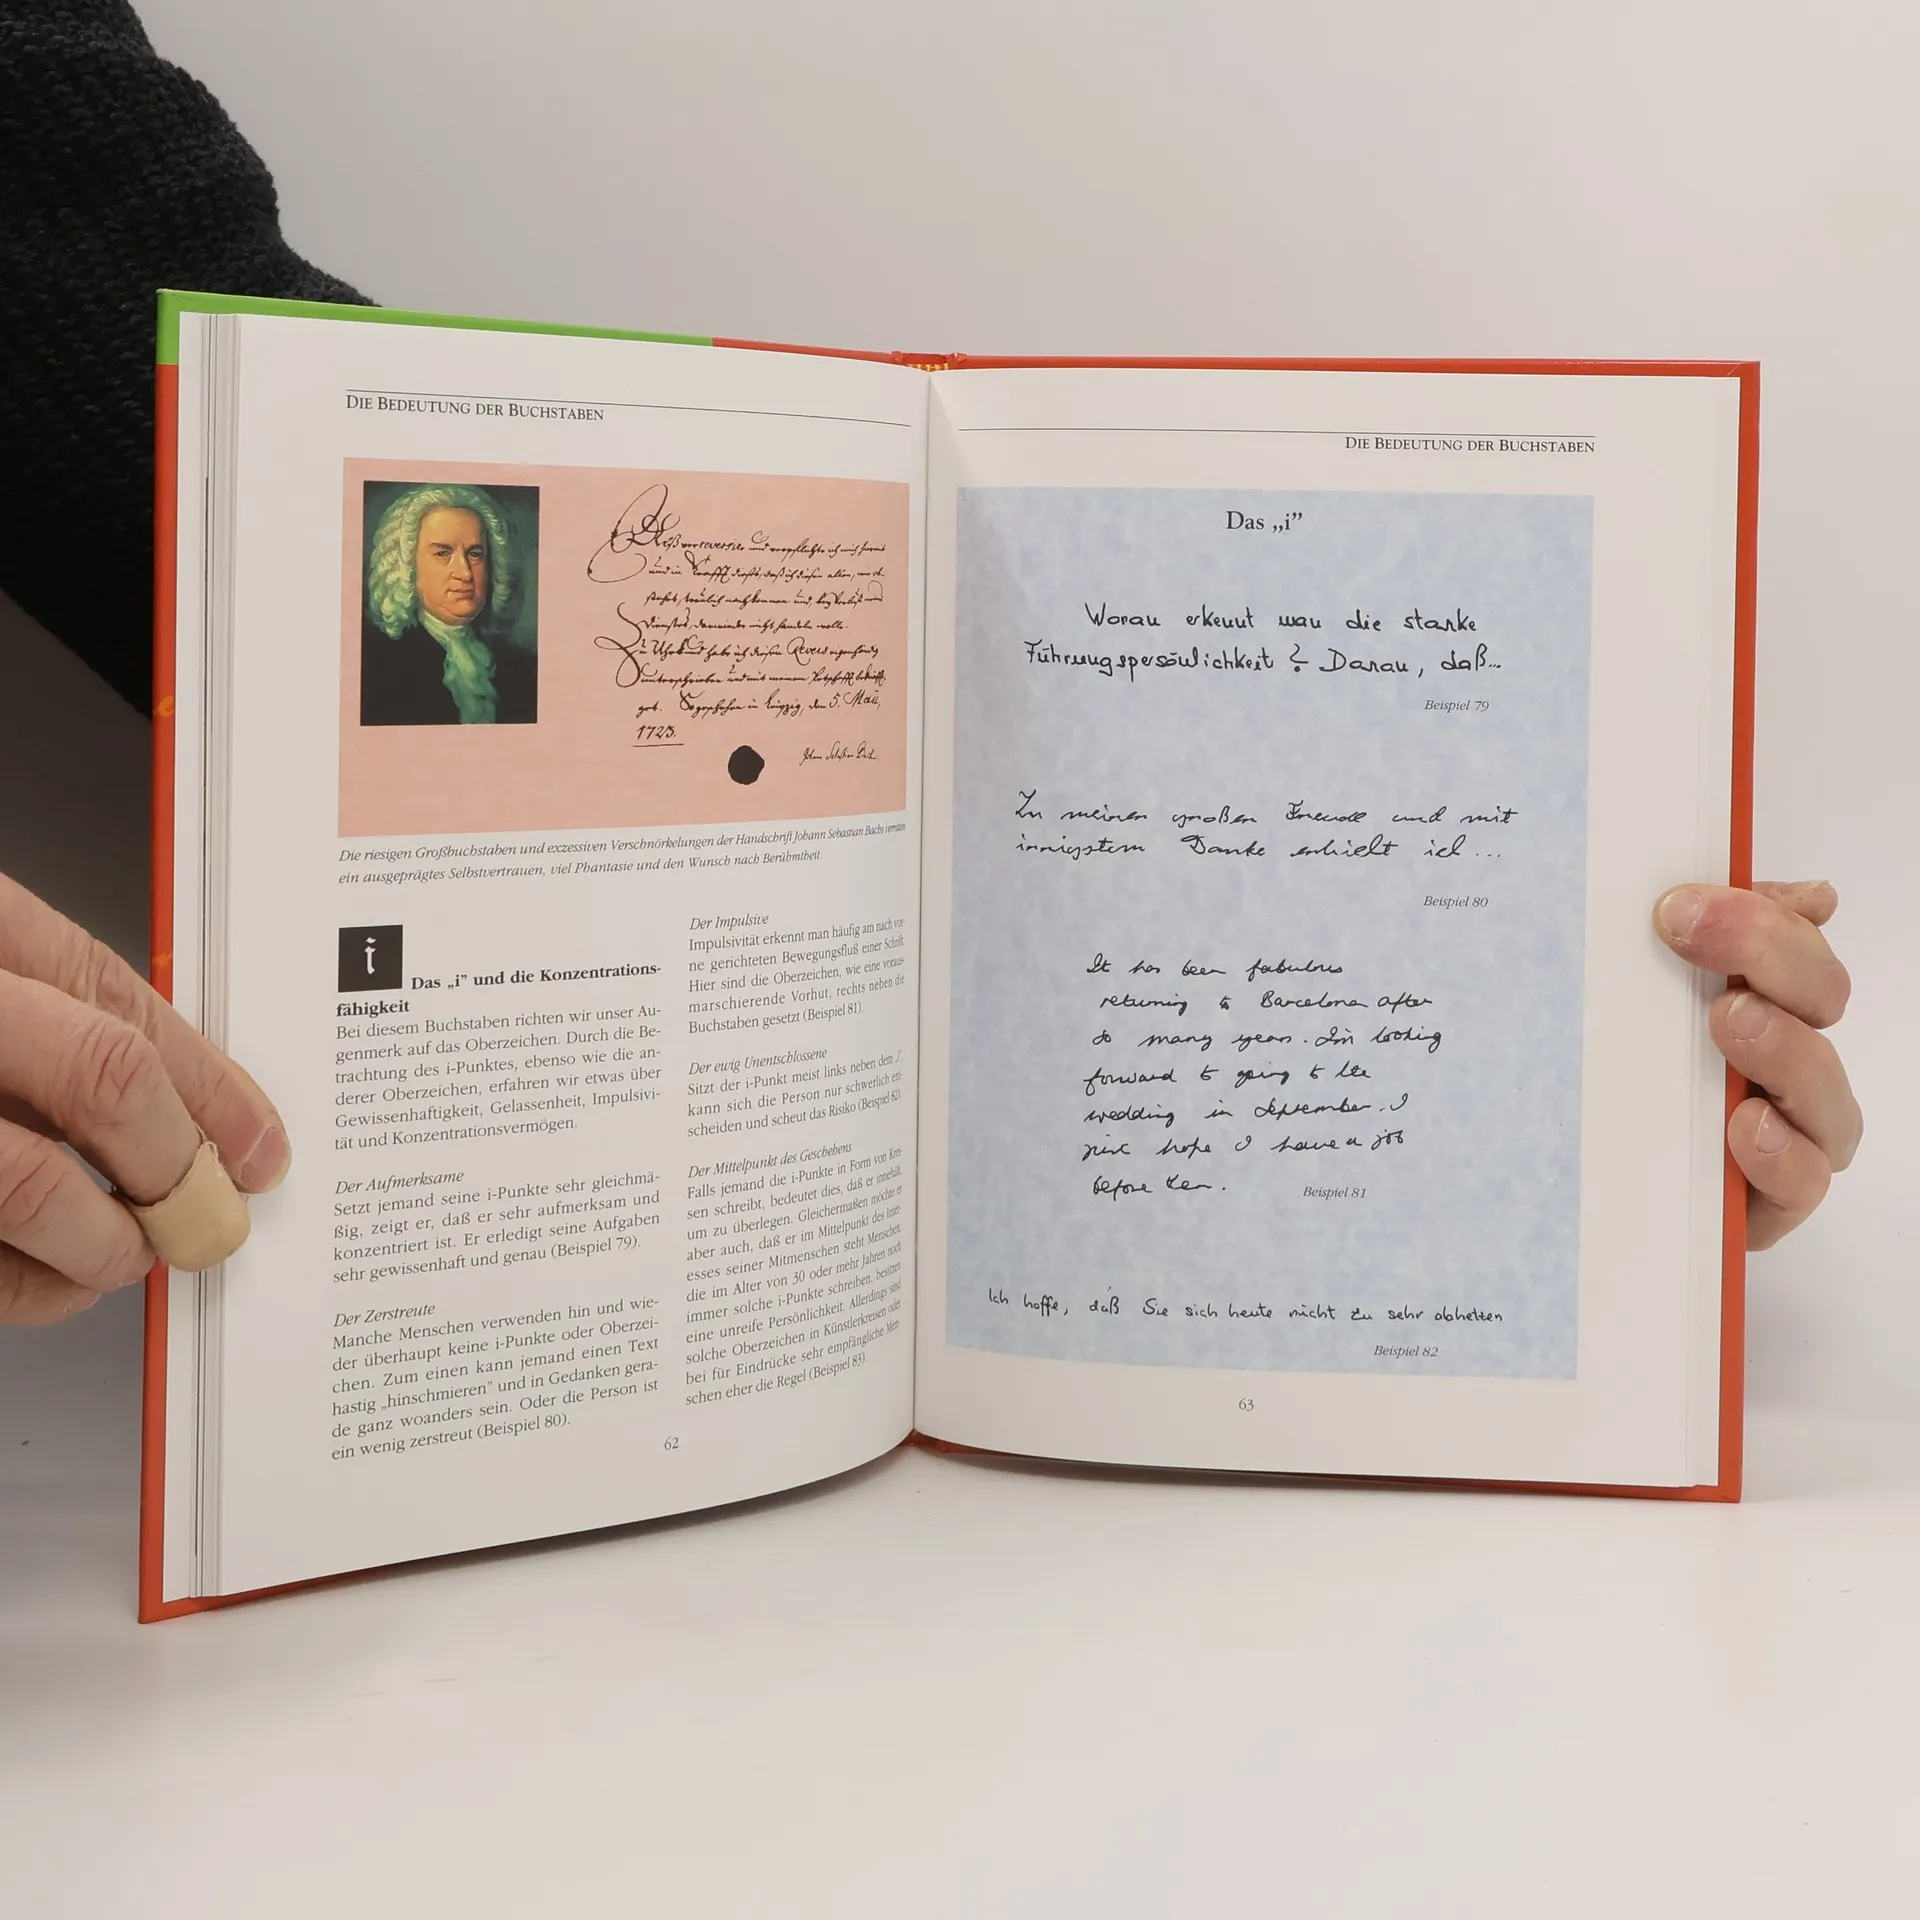 DIE BEDEUTUNG DER BUCHSTABEN
und in
1723.
Die riesigen Großbuchstaben und exzessiven Verschnörkelungen der Handschrift Johann Sebastian Bachs verraten
ein ausgeprägtes Selbstvertrauen, viel Phantasie und den Wunsch nach Berühmtheit.
i
Das „i” und die Konzentrations-
fähigkeit
Bei diesem Buchstaben richten wir unser Au-
genmerk auf das Oberzeichen. Durch die Be-
trachtung des i-Punktes, ebenso wie die an-
derer Oberzeichen, erfahren wir etwas über
Gewissenhaftigkeit, Gelassenheit, Impulsivi-
tät und Konzentrationsvermögen.
Der Aufmerksame
Setzt jemand seine i-Punkte sehr gleichmä-
ßig, zeigt er, daß er sehr aufmerksam und
konzentriert ist. Er erledigt seine Aufgaben
sehr gewissenhaft und genau (Beispiel 79).
Der Zerstreute
Manche Menschen verwenden hin und wie-
der überhaupt keine i-Punkte oder Oberzei-
chen. Zum einen kann jemand einen Text
hastig „hinschmieren” und in Gedanken gera-
de ganz woanders sein. Oder die Person ist
ein wenig zerstreut (Beispiel 80).
Der Impulsive
Impulsivität erkennt man häufig am nach vor-
ne gerichteten Bewegungsfluß einer Schrift.
Hier sind die Oberzeichen, wie eine voraus-
marschierende Vorhut, rechts neben die
Buchstaben gesetzt (Beispiel 81).
Der ewig Unentschlossene
Sitzt der i-Punkt meist links neben dem „i”,
kann sich die Person nur schwerlich ent-
scheiden und scheut das Risiko (Beispiel 82).
Der Mittelpunkt des Geschehens
Falls jemand die i-Punkte in Form von Krei-
sen schreibt, bedeutet dies, daß er innehält,
um zu überlegen. Gleichermaßen möchte er
aber auch, daß er im Mittelpunkt des Inter-
esses seiner Mitmenschen steht. Menschen,
die im Alter von 30 oder mehr Jahren noch
immer solche i-Punkte schreiben, besitzen
eine unreife Persönlichkeit. Allerdings sind
solche Oberzeichen in Künstlerkreisen oder
bei für Eindrücke sehr empfängliche Men-
schen eher die Regel (Beispiel 83).
62
DIE BEDEUTUNG DER BUCHSTABEN
Das „i”
Woran erkennt man die starke
Führungspersönlichkeit? Daran, daß...
Beispiel 79
Zu meiner großen Freude und mit
innigstem Danke erhielt ich ...
Beispiel 80
It has been fabulous
returning to Barcelona after
so many years. I'm looking
forward to going to the
wedding in September. I
just hope I have a job
before then.
Beispiel 81
Ich hoffe, daß Sie sich heute nicht zu sehr abhetzen
Beispiel 82
63